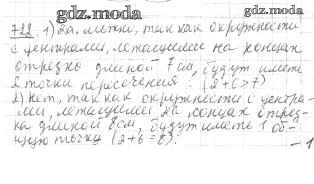 gdz.moda
788 1) Заметим, так как окружности
с центрами, лежащими на концах
отрезка длиной 7 см, будут иметь
2 точки пересечения (2+6>7)
2) Нет, так как окружности с центра-
ми, лежащими на концах отрез-
ка длиной 8 см, будут иметь 1 об-
щую точку (2+6=8).
-1
gdz.moda